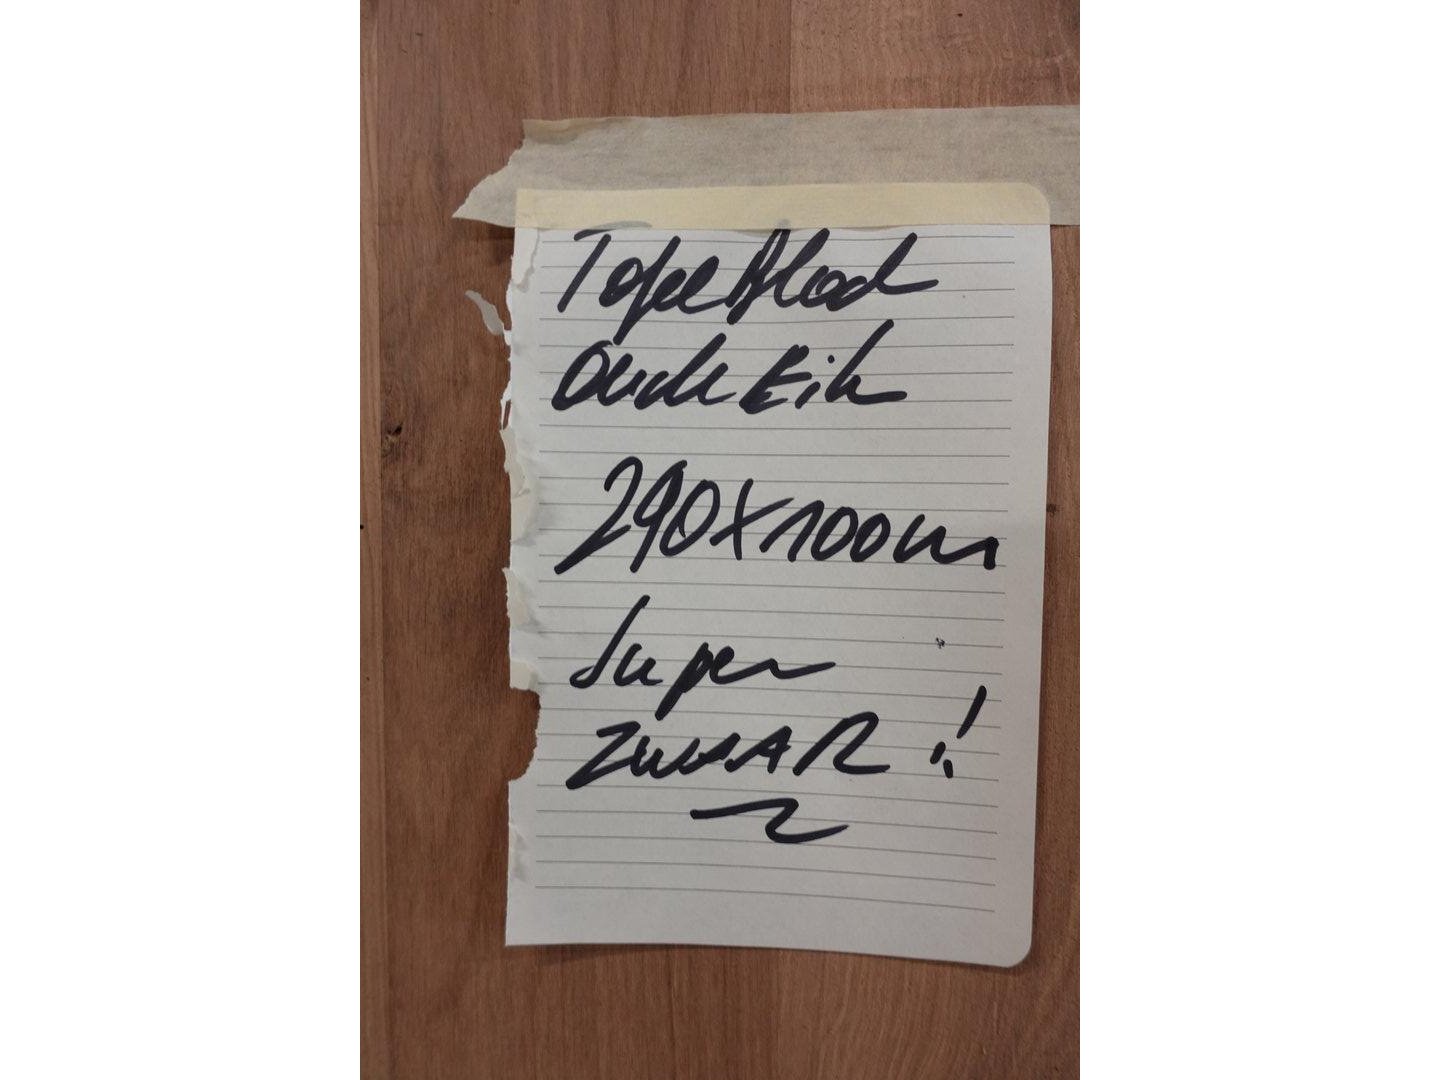 Tafelblad
Oude Eik
290x100cm
Super
ZWAAR!!